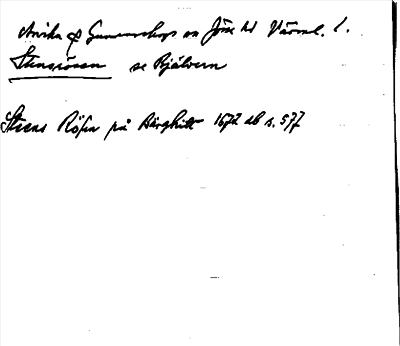 Arvika o Gunnarskogs sn Jösse hd Värml. l.
Stensrösen se Bjälvern
Steens Rösen på Bärghitt 1672 db s. 577